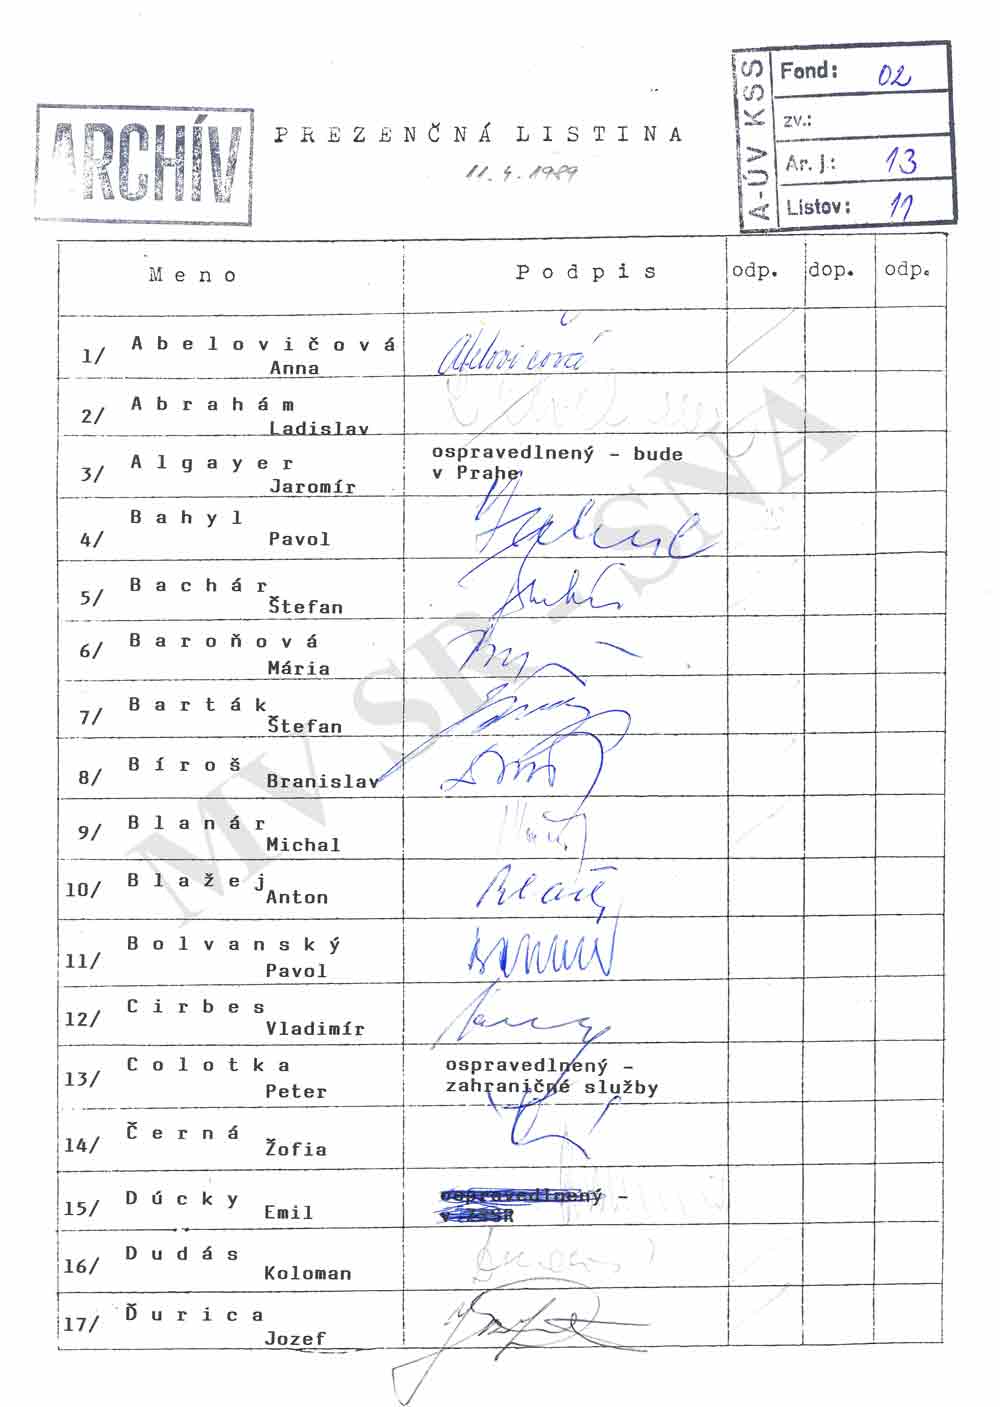 ARCHÍV
PREZENČNÁ LISTINA
11.4.1989
A-ÚV KSS
Fond: 02
zv.:
Ar. j.: 13
Listov: 11
Meno Podpis odp. dop. odp.
1/ Abelovičová Anna Abelovičová
2/ Abrahám Ladislav
3/ Algayer Jaromír ospravedlnený - bude
v Prahe
4/ Bahyl Pavol
5/ Bachár Štefan
6/ Baroňová Mária
7/ Barták Štefan
8/ Bíroš Branislav
9/ Blanár Michal
10/ Blažej Anton
11/ Bolvanský Pavol
12/ Cirbes Vladimír
13/ Colotka Peter ospravedlnený -
zahraničné služby
14/ Černá Žofia
15/ Dúcky Emil ospravedlnený -
v ZSSR
16/ Dudás Koloman
17/ Ďurica Jozef
MV SR - SNA